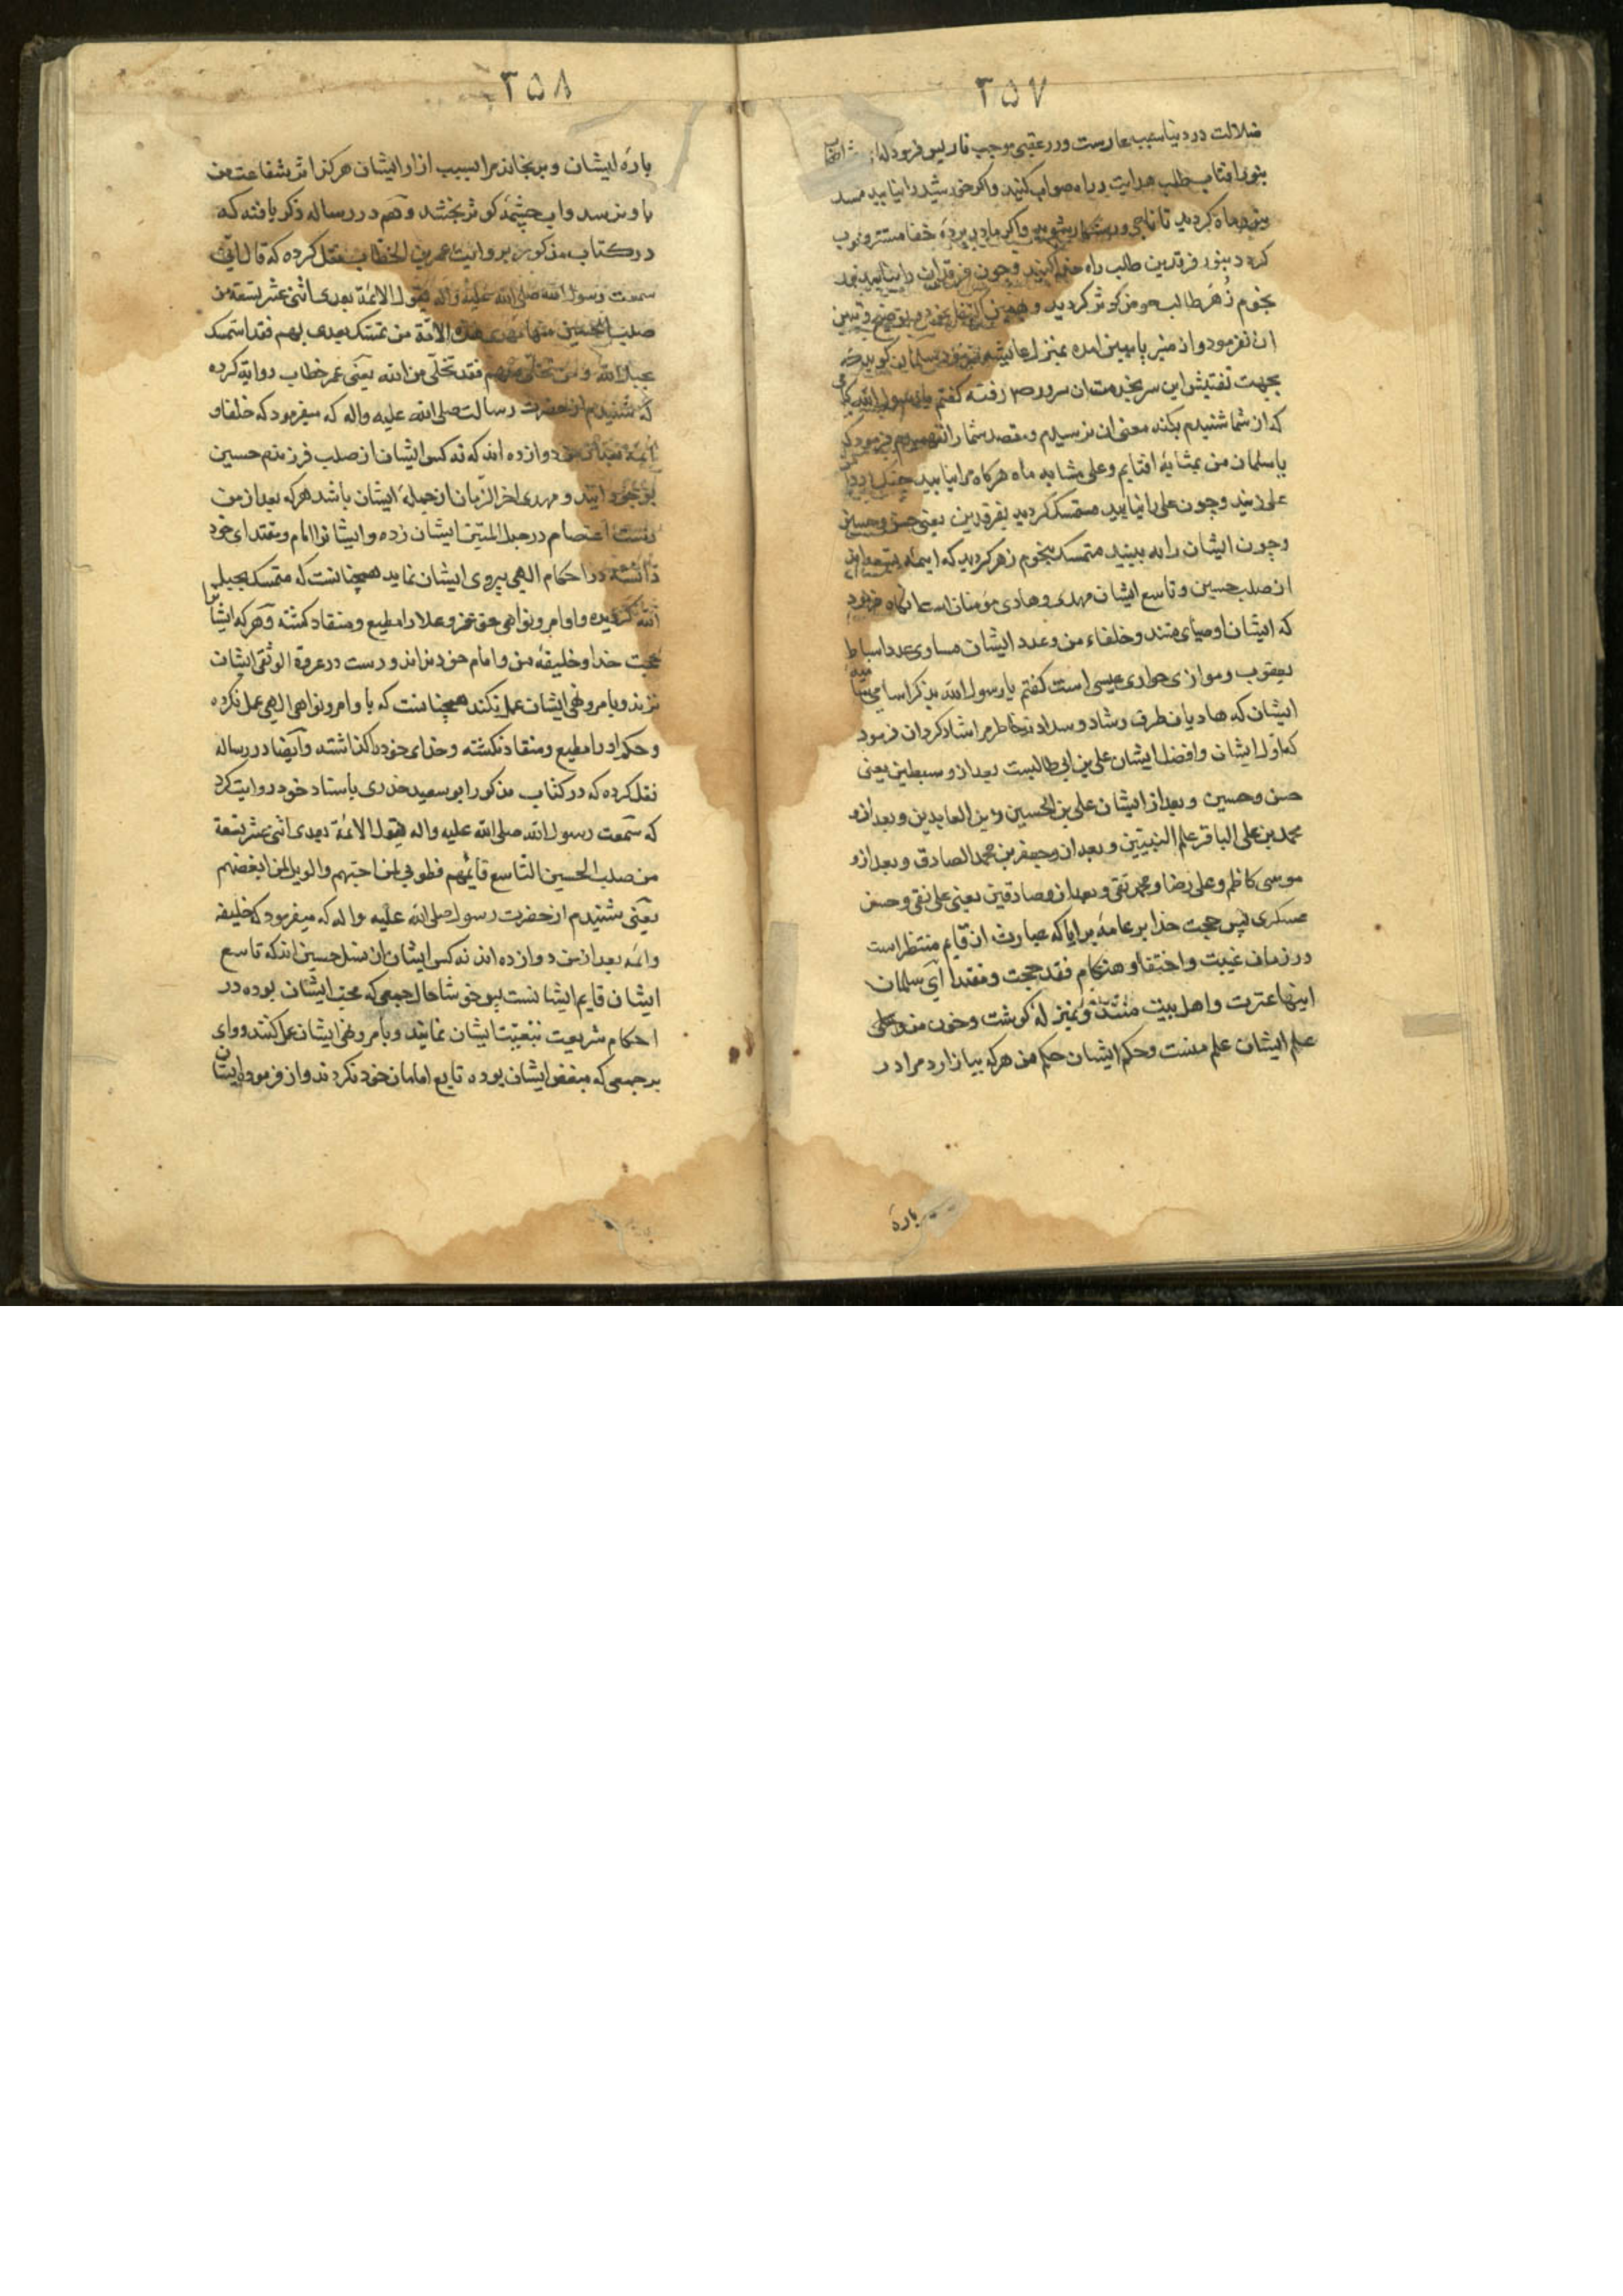 ۳۵۷
ضلالت در دنیا سبب عارست و در عقبی موجب نار پس فرمود که
بنور افتاب طلب هدایت و راه صواب کنید و اکر خورشید را نیابید
بنور ماه کردید تا ناجی و رستکار شوید و اکر ماه در پرده خفا مستتر و
کردد بنور فرقدین طالب راه کنید و چون فرقدان را نیابید
بنجوم زهر طالب حوض کوثر کردید و
ان نفرمود و از منبر پایین امده بمنزل عایشه سلمان کوید که
بجهت تفتیش این سر بخدمت ان سرور رفته کفتم یا رسول الله
که از شما شنیدم بکنه معنی ان نرسیدم و مقصد شما را نفهمیدم فرمود که
یا سلمان من بمثابه افتابم و علی مشابه ماه هرکاه مرا نیابید چنک در
علی زنید و چون علی را نیابید متمسک کردید بفرقدین یعنی حسن و حسین
و چون ایشان را نه بینید متمسک بنجوم زهر کردید که ایمه
از صلب حسین و تاسع ایشان مهدی و هادی مؤمنان است انکاه فرمود
که ایشان اوصیای منند و خلفاء من و عدد ایشان مساوی عدد اسباط
یعقوب و موازی حواری عیسی است کفتم یا رسول الله بذکر اسامی
ایشان که هادیان طرق رشاد و سدادند خاطر مرا شاد کردان فرمود
که اول ایشان و افضل ایشان علی بن ابی طالبست بعد ازو سبطین یعنی
حسن و حسین و بعد از ایشان علی بن الحسین زین العابدین و بعد ازو
محمد بن علی الباقر علم النبیین و بعد ازو جعفر بن محمد الصادق و بعد ازو
موسی کاظم و علی رضا و محمد تقی و بعد ازو صادقین یعنی علی نقی و حسن
عسکری پس حجت خدا بر عامه برایا که عبارت از قایم منتظر است
در زمان غیبت و اختفا و هنکام فقد حجت و مقتدا ای سلمان
اینها عترت و اهل بیت منند و بمنزله کوشت و خون من و
علم ایشان علم منست و حکم ایشان حکم من هرکه بیازارد مرا در
باره
۳۵۸
باره ایشان و برنجاند مرا بسبب ازار ایشان هرکز اثر شفاعت من
باو نرسد و اب چشمه کوثر نچشد و هم در رساله ذکر یافته که
در کتاب مذکور بروایت عمر بن الخطاب نقل کرده که قال انی
سمعت رسول الله صلی الله علیه واله یقول الائمة بعدی اثنی عشر تسعة من
صلب الحسین منها مهدی هذه الامة من تمسک بعدی بهم فقد استمسک
بحبل الله و من تخلی منهم فقد تخلی من الله یعنی عمر خطاب روایة کرده
که شنیدم از حضرت رسالت صلی الله علیه واله که میفرمود که خلفا و
ائمه بعد از من دوازده اند که نه کس ایشان از صلب فرزندم حسین
بوجود ایند و مهدی اخر الزمان از جمله ایشان باشد هرکه بعد از من
دست اعتصام در حبل المتین ایشان زده و ایشانرا امام و مقتدای خود
دانسته در احکام الهی پیروی ایشان نماید همچنانست که متمسک بحبل
الله کردیده و اوامر و نواهی حق عز و علا را مطیع و منقاد کشته و هرکه ایشانرا
حجت خدا و خلیفه من و امام خود نداند و دست در عروة الوثقی ایشان
نزند و بامر و نهی ایشان عمل نکند همچنانست که باوامر و نواهی الهی عمل نکرده
و حکم او را مطیع و منقاد نکشته و خدای خود را نشناخته و ایضا در رساله
نقل کرده که در کتاب مذکور ابو سعید خدری باسناد خود روایت کرد
که سمعت رسول الله صلی الله علیه واله یقول الائمة بعدی اثنی عشر تسعة
من صلب الحسین التاسع قایمهم فطوبی لمن احبهم والویل لمن ابغضهم
یعنی شنیدم از حضرت رسول صلی الله علیه واله که میفرمود که خلیفه
وائمه بعد از من دوازده اند نه کس ایشان از نسل حسین اند که تاسع
ایشان قایم ایشانست پس خوشا حال جمعی که محب ایشان بوده در
احکام شریعت تبعیت ایشان نمایند و بامر و نهی ایشان عمل کنند و وای
بر جمعی که مبغض ایشان بوده تابع امامان خود نکردند و از فرموده ایشان